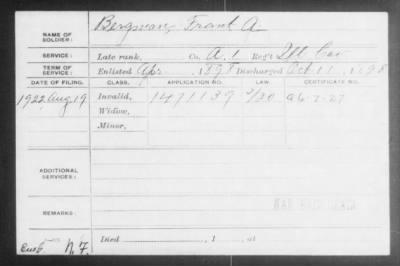 NAME OF SOLDIER: Bergman, Frank A
SERVICE: Late rank, Co. A. 1 Reg't Ill Cav
TERM OF SERVICE: Enlisted Apr , 1898 Discharged Oct 11, 1898
DATE OF FILING. CLASS. APPLICATION NO. LAW. CERTIFICATE NO.
1922 Aug 19 Invalid, 1471139
Widow,
Minor,
ADDITIONAL SERVICES:
REMARKS:
Died , 1 , at